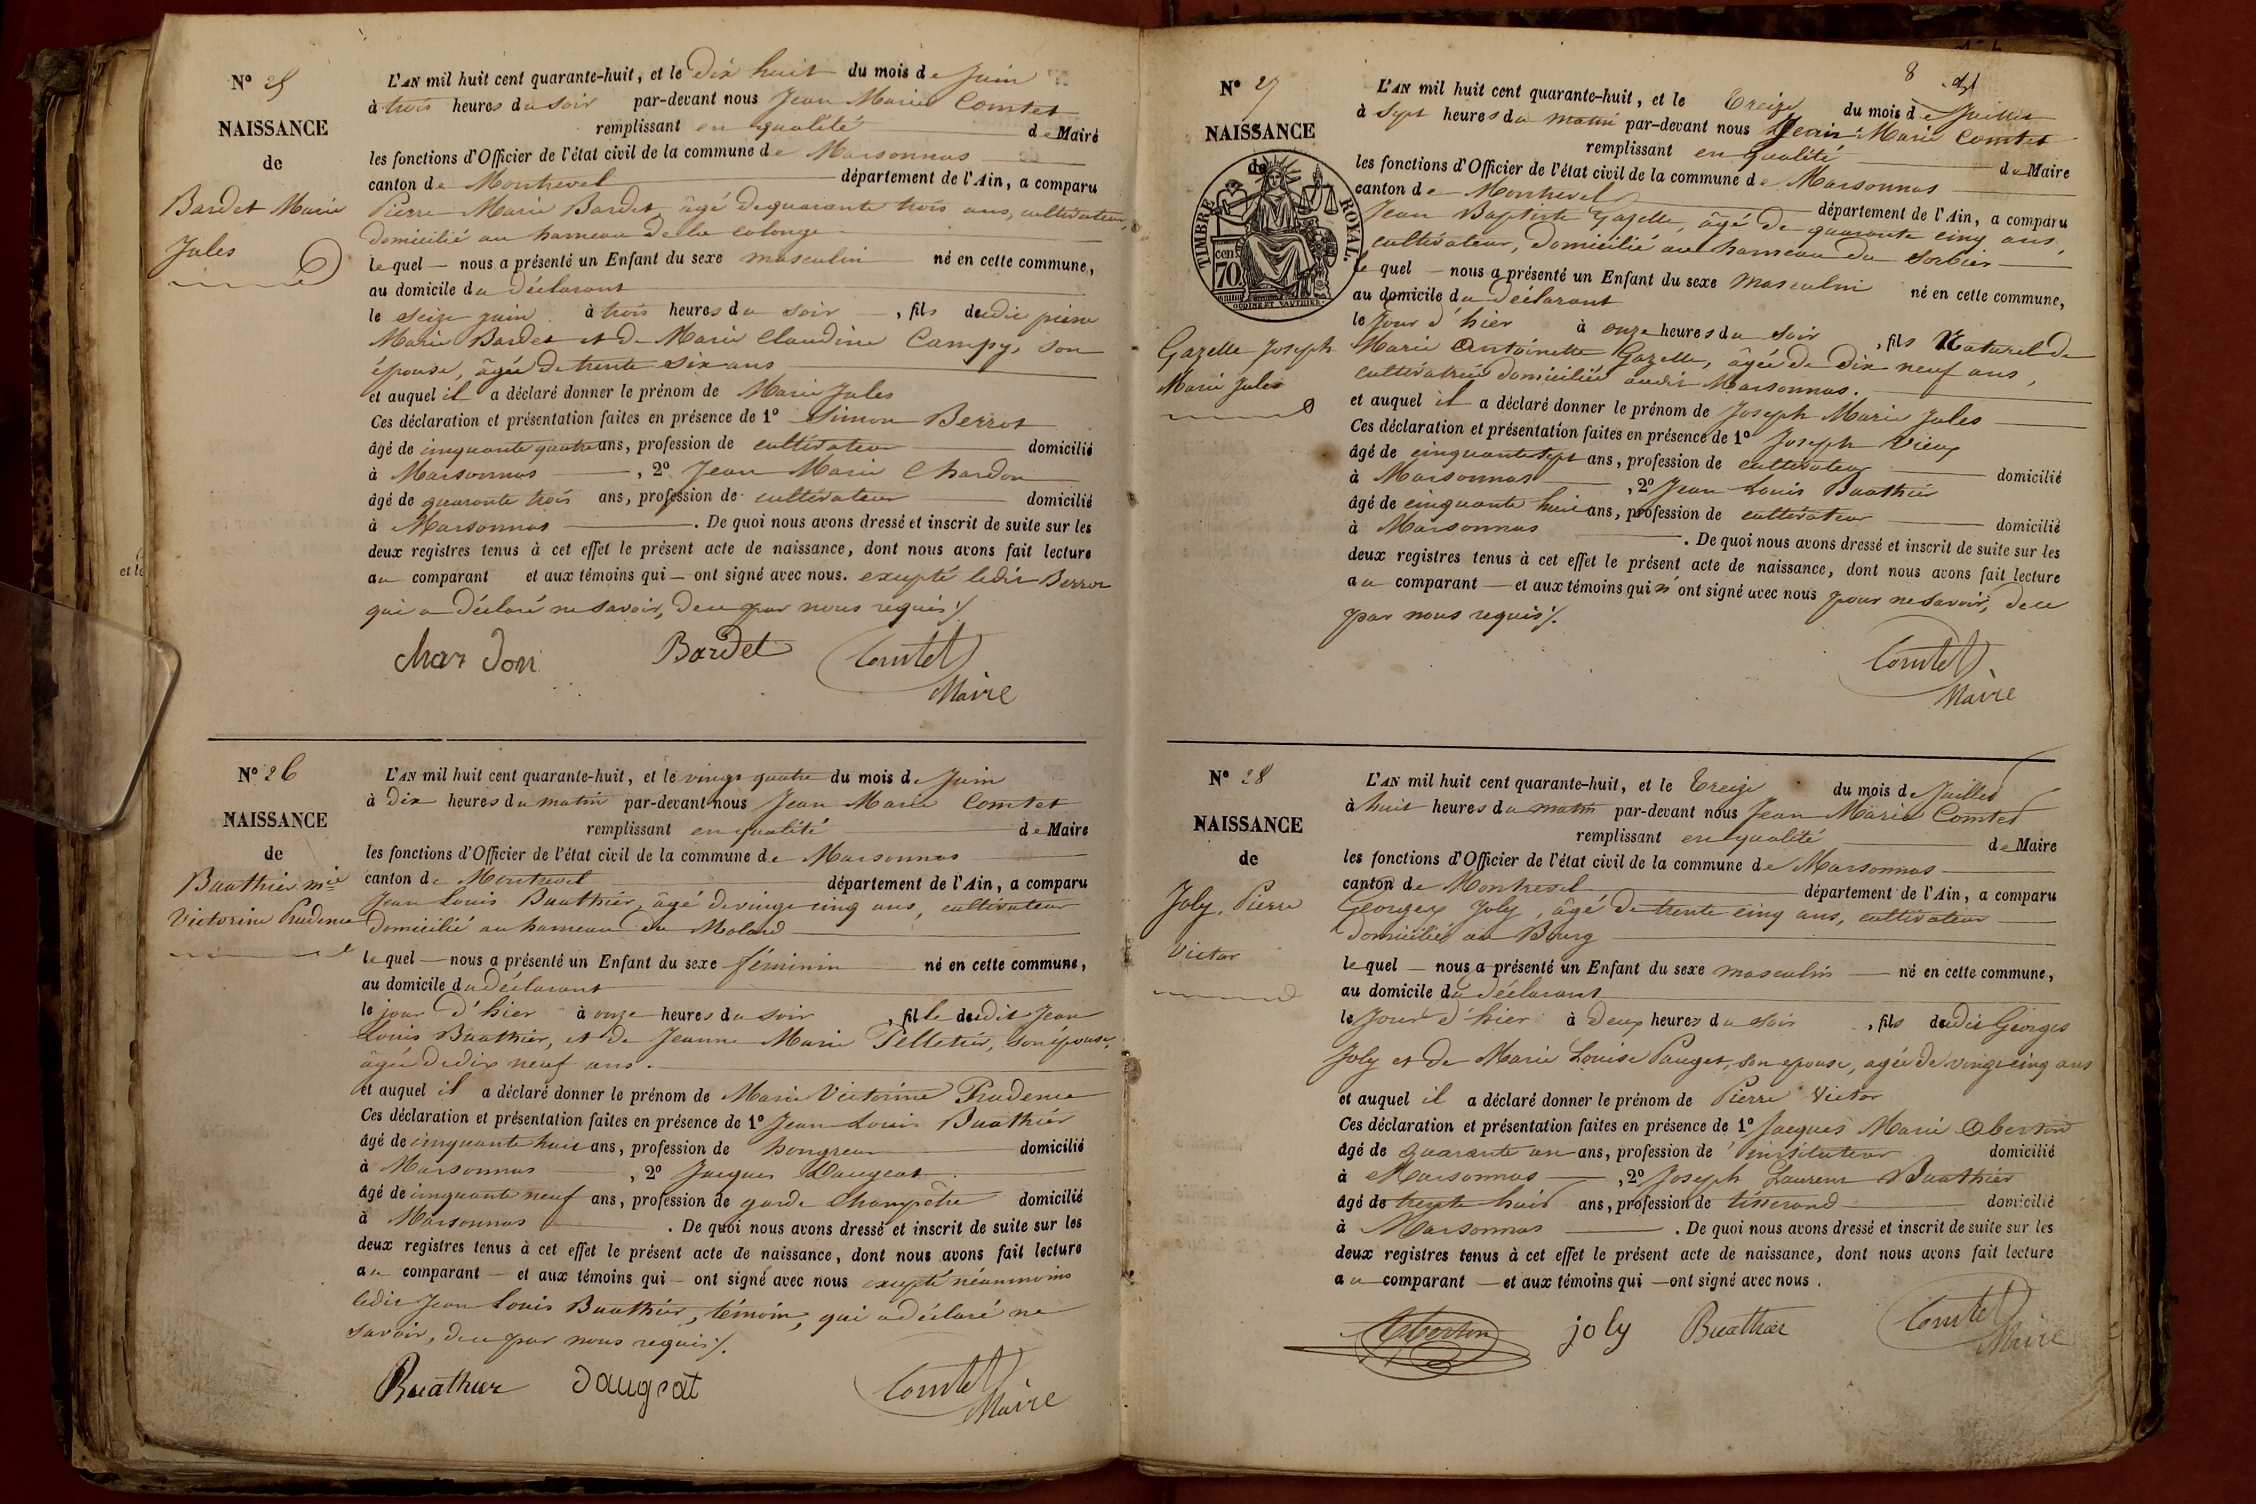 N° 25
NAISSANCE
de
Bardet Marie
Jules
L'AN mil huit cent quarante-huit, et le Dix huit du mois de Juin
à trois heures du soir par-devant nous Jean Marie Comtet
remplissant en qualité de Maire
les fonctions d'Officier de l'état civil de la commune de Marsonnas
canton de Montrevel département de l'Ain, a comparu
Pierre Marie Bardet âgé de quarante trois ans, cultivateur,
domicilié au hameau de la colonge
lequel nous a présenté un Enfant du sexe masculin né en cette commune,
au domicile du déclarant
le seize juin à trois heures du soir, fils dudit pierre
Marie Bardet et de Marie Claudine Campy, son
épouse, âgée de trente six ans
et auquel il a déclaré donner le prénom de Marie Jules
Ces déclaration et présentation faites en présence de 1° Simon Berrot
âgé de cinquante quatre ans, profession de cultivateur domicilié
à Marsonnas, 2° Jean Marie Chardon
âgé de quarante trois ans, profession de cultivateur domicilié
à Marsonnas. De quoi nous avons dressé et inscrit de suite sur les
deux registres tenus à cet effet le présent acte de naissance, dont nous avons fait lecture
au comparant et aux témoins qui ont signé avec nous. excepté ledit Berrot
qui a déclaré ne savoir, de ce par nous requis ./.
char don Bardet Comtet
Maire
N° 26
NAISSANCE
de
Buathier mie
Victorine Prudence
L'AN mil huit cent quarante-huit, et le vingt quatre du mois de Juin
à Dix heures du matin par-devant nous Jean Marie Comtet
remplissant en qualité de Maire
les fonctions d'Officier de l'état civil de la commune de Marsonnas
canton de Montrevel département de l'Ain, a comparu
Jean Louis Buathier, âgé de vingt cinq ans, cultivateur
domicilié au hameau du Molard
lequel nous a présenté un Enfant du sexe féminin né en cette commune,
au domicile du déclarant
le jour d'hier à onze heures du soir, fille dudit Jean
Louis Buathier, et de Jeanne Marie Pelletier, son épouse,
âgée de dix neuf ans.
et auquel il a déclaré donner le prénom de Marie Victorine Prudence
Ces déclaration et présentation faites en présence de 1° Jean Louis Buathier
âgé de cinquante huit ans, profession de hongreur domicilié
à Marsonnas, 2° Jacques Daugeat
âgé de cinquante neuf ans, profession de garde Champêtre domicilié
à Marsonnas. De quoi nous avons dressé et inscrit de suite sur les
deux registres tenus à cet effet le présent acte de naissance, dont nous avons fait lecture
au comparant et aux témoins qui ont signé avec nous excepté néanmoins
ledit Jean Louis Buathier, témoin, qui a déclaré ne
savoir, de ce par nous requis ./.
Buathier Daugeat Comtet
Maire
8
N° 27
NAISSANCE
de
TIMBRE ROYAL.
cen 70
Gazelle Joseph
Marie Jules
L'AN mil huit cent quarante-huit, et le Treize du mois de Juillet
à Sept heures du matin par-devant nous Jean Marie Comtet
remplissant en qualité de Maire
les fonctions d'Officier de l'état civil de la commune de Marsonnas
canton de Montrevel département de l'Ain, a comparu
Jean Baptiste Gazelle, âgé de quarante cinq ans,
cultivateur, domicilié au hameau du Sorbier
lequel nous a présenté un Enfant du sexe masculin né en cette commune,
au domicile du déclarant
le Jour d'hier à onze heures du soir, fils Naturel de
Marie Antoinette Gazelle, âgée de dix neuf ans,
cultivatrice domiciliée audit Marsonnas.
et auquel il a déclaré donner le prénom de Joseph Marie Jules
Ces déclaration et présentation faites en présence de 1° Joseph Vieux
âgé de cinquante sept ans, profession de cultivateur domicilié
à Marsonnas, 2° Jean Louis Buathier
âgé de cinquante huit ans, profession de cultivateur domicilié
à Marsonnas. De quoi nous avons dressé et inscrit de suite sur les
deux registres tenus à cet effet le présent acte de naissance, dont nous avons fait lecture
au comparant et aux témoins qui n'ont signé avec nous pour ne savoir, de ce
par nous requis ./.
Comtet
Maire
N° 28
NAISSANCE
de
Joly, Pierre
Victor
L'AN mil huit cent quarante-huit, et le Treize du mois de Juillet
à huit heures du matin par-devant nous Jean Marie Comtet
remplissant en qualité de Maire
les fonctions d'Officier de l'état civil de la commune de Marsonnas
canton de Montrevel département de l'Ain, a comparu
Georges Joly, âgé de trente cinq ans, cultivateur
domicilié au Bourg
lequel nous a présenté un Enfant du sexe masculin né en cette commune,
au domicile du déclarant
le Jour d'hier à deux heures du soir, fils dudit Georges
Joly et de Marie Louise Pauget, son epouse, agée de vingt cinq ans
et auquel il a déclaré donner le prénom de Pierre Victor
Ces déclaration et présentation faites en présence de 1° Jacques Marie Oberson
âgé de quarante un ans, profession de instituteur domicilié
à Marsonnas, 2° Joseph Laurent Buathier
âgé de trente huit ans, profession de tisserand domicilié
à Marsonnas. De quoi nous avons dressé et inscrit de suite sur les
deux registres tenus à cet effet le présent acte de naissance, dont nous avons fait lecture
au comparant et aux témoins qui ont signé avec nous.
Oberson joly Buathier Comtet
Maire